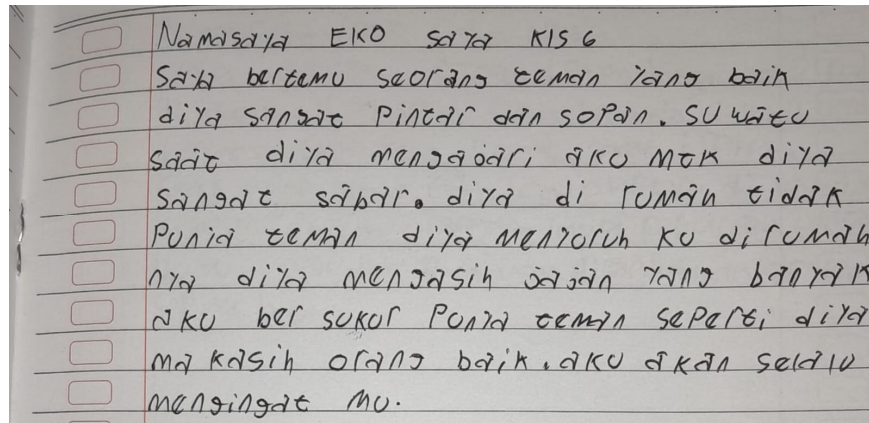 Namasaya EKO saya Kls 6
Saya bertemu seorang teman yang baik
diya sangat Pintar dan soPan. SU watu
saat diya mengajari aku MtK diya
sangat sabar. diya di rumah tidak
Punia teman diya menyoruh ku dirumah
nya diya mengasih jajan yang banyak
aku ber sukur Punya teman sePerti diya
ma kasih orang baik. aku akan selalu
mengingat mu.